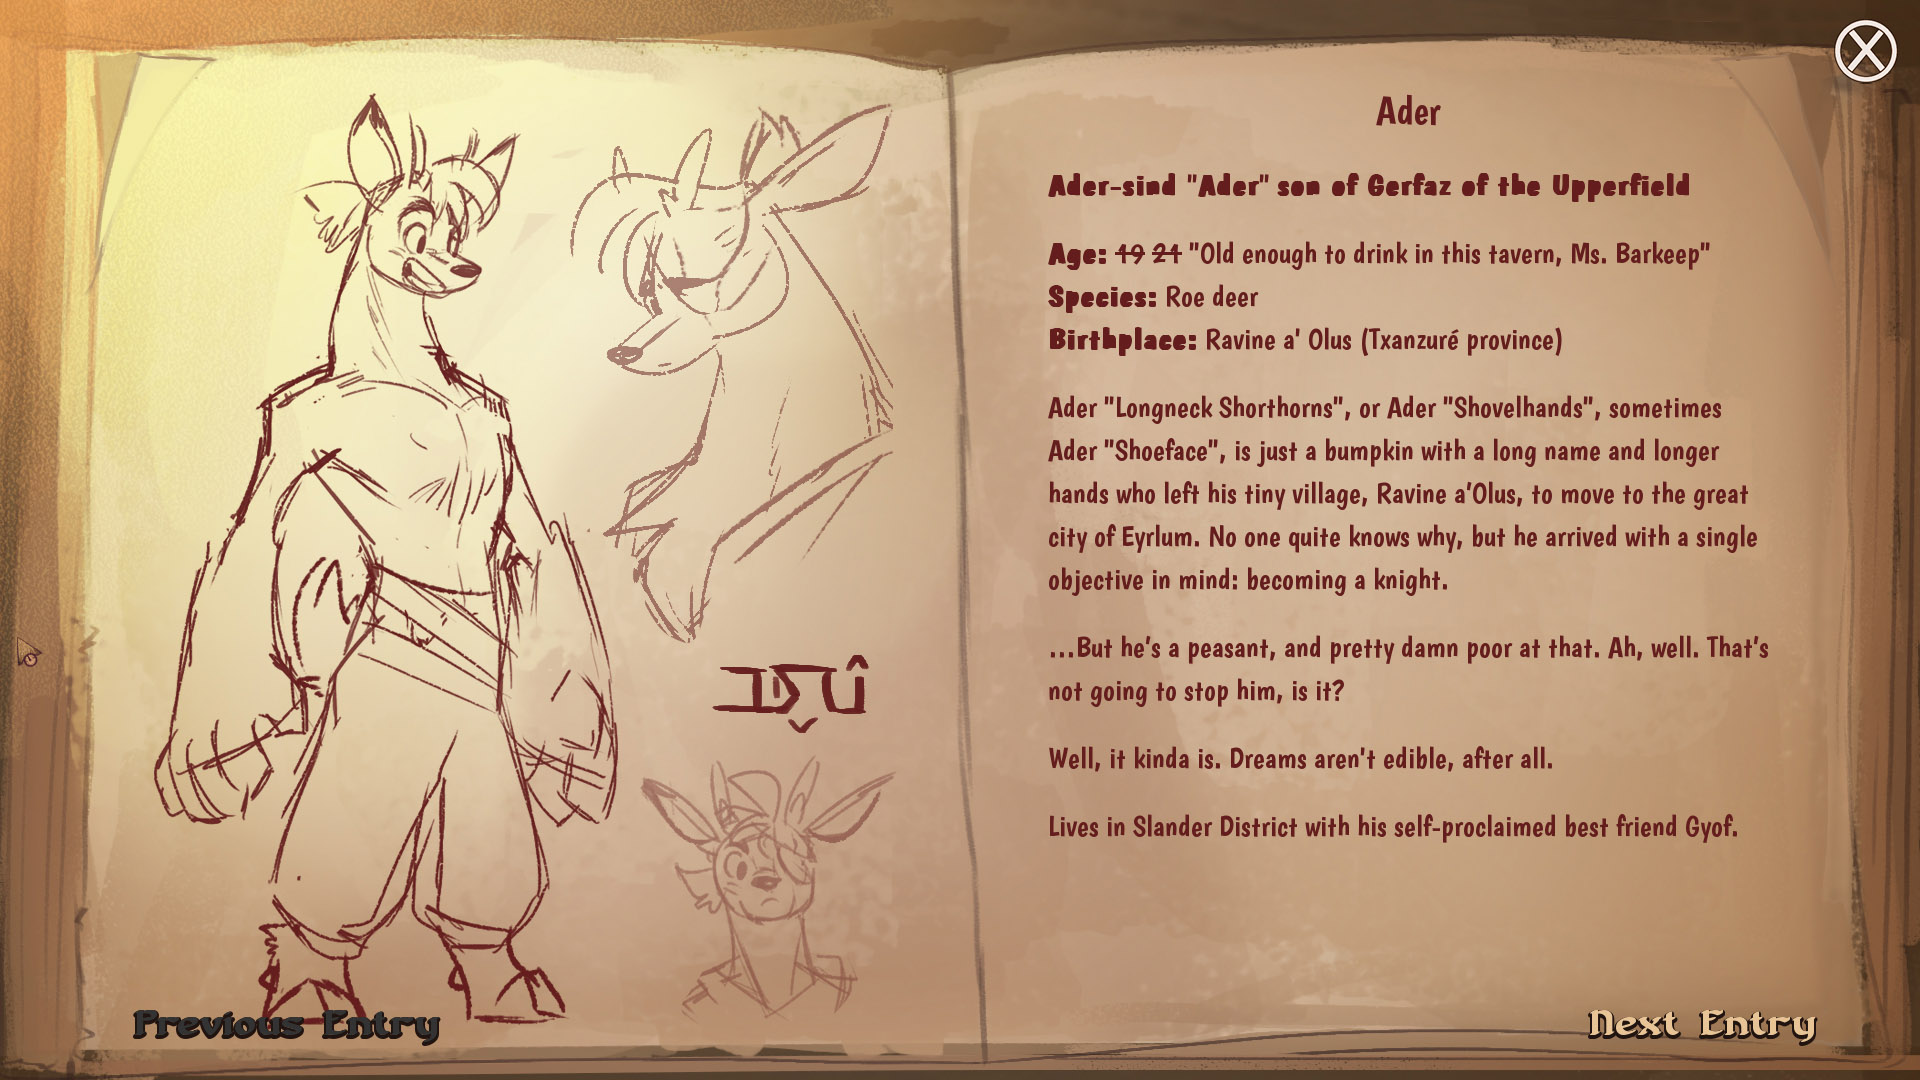 Ader
Ader-sind "Ader" son of Gerfaz of the Upperfield
Age: 19 21 "Old enough to drink in this tavern, Ms. Barkeep"
Species: Roe deer
Birthplace: Ravine a' Olus (Txanzuré province)
Ader "Longneck Shorthorns", or Ader "Shovelhands", sometimes
Ader "Shoeface", is just a bumpkin with a long name and longer
hands who left his tiny village, Ravine a’Olus, to move to the great
city of Eyrlum. No one quite knows why, but he arrived with a single
objective in mind: becoming a knight.
...But he’s a peasant, and pretty damn poor at that. Ah, well. That’s
not going to stop him, is it?
Well, it kinda is. Dreams aren't edible, after all.
Lives in Slander District with his self-proclaimed best friend Gyof.
Previous Entry
Next Entry